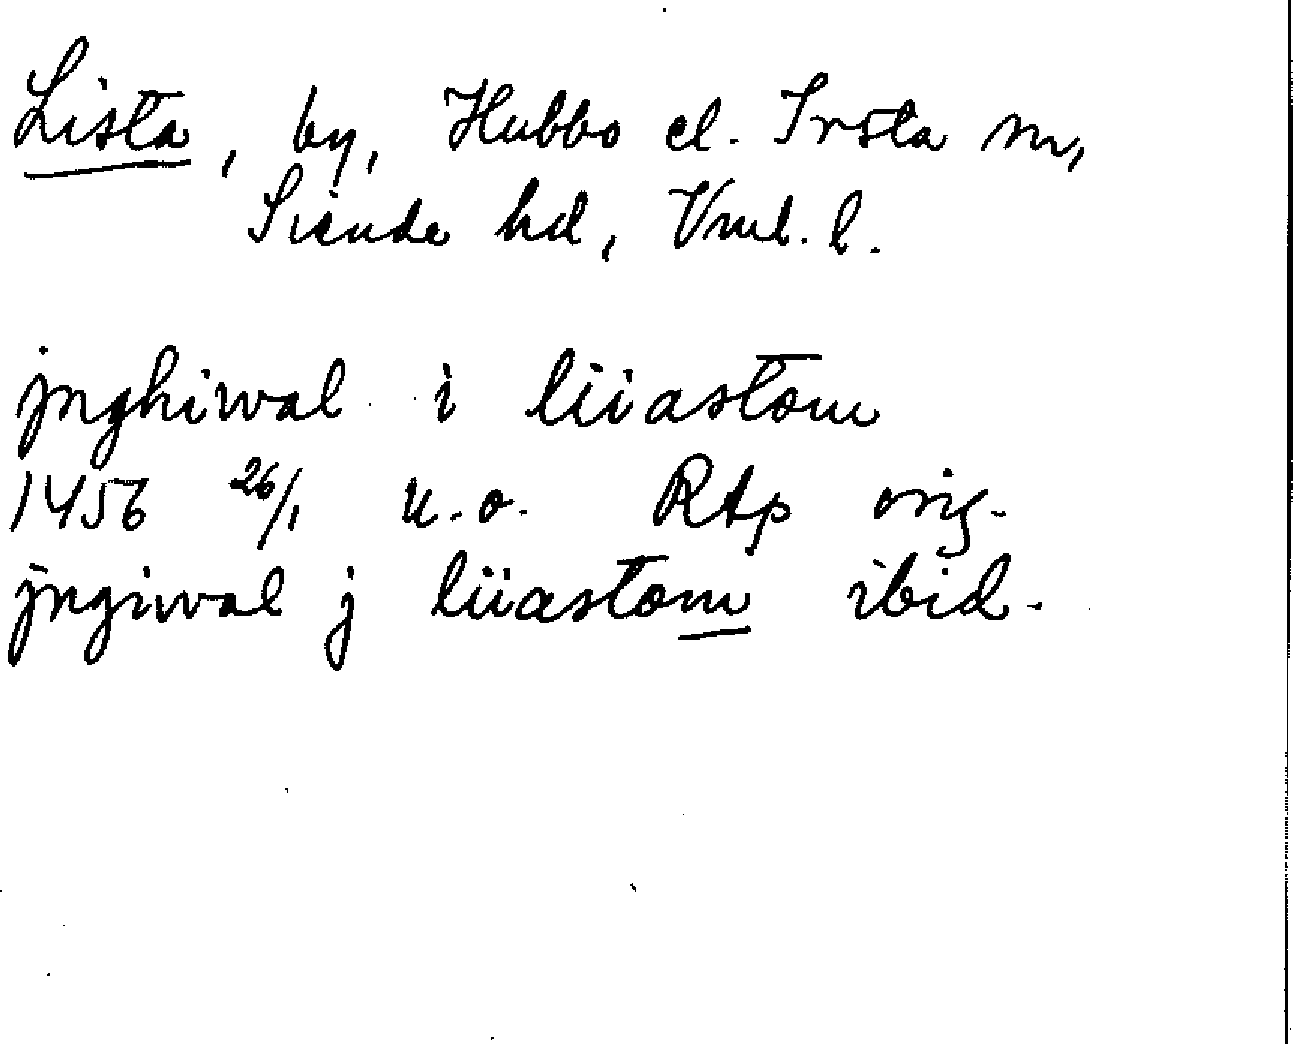 Lista, by, Hubbo el. Irsta sn,
Siende hd, Vml. l.
jnghiwal i liiastom
1456 26/1 u.o. RAp orig.
jngiwal j liiastom ibid.